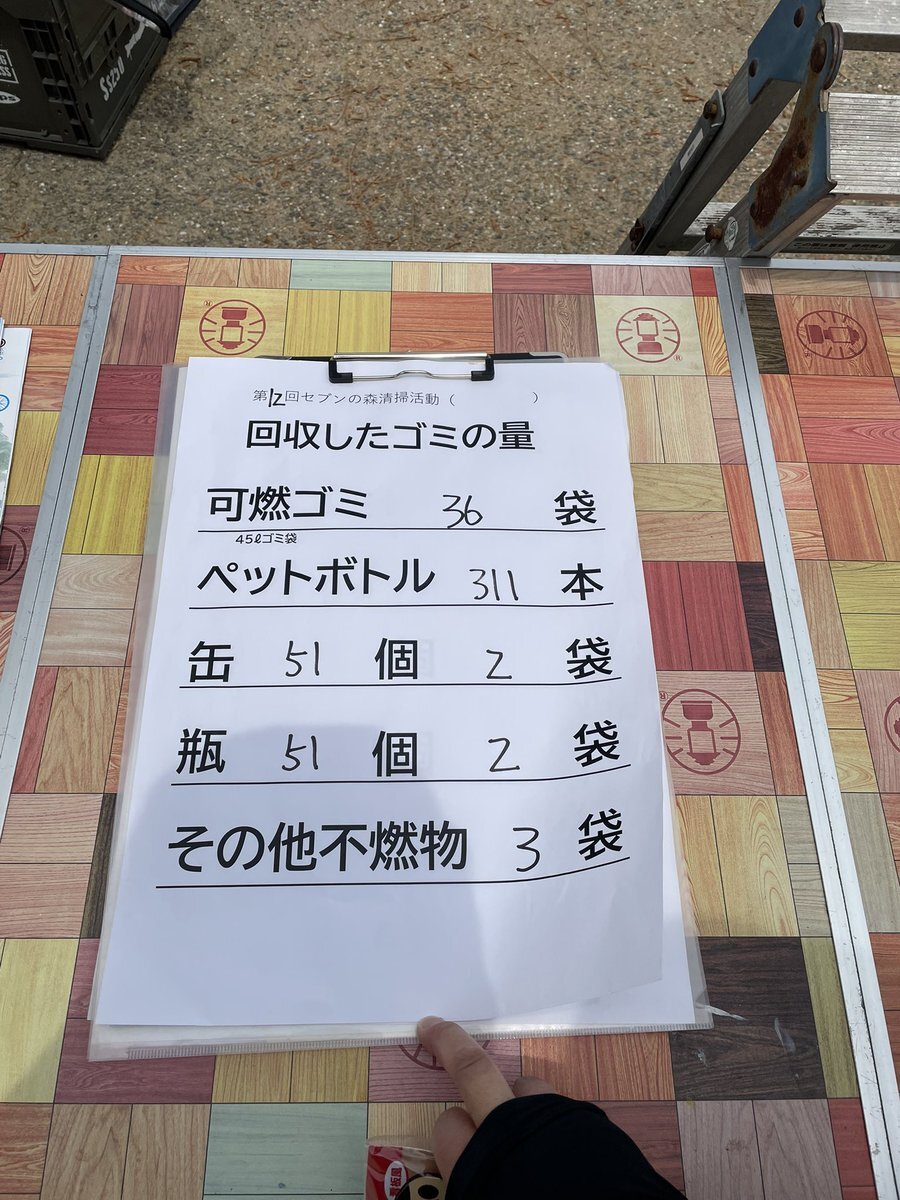 SS250
第12回セブンの森清掃活動（　　　　）
回収したゴミの量
可燃ゴミ 36 袋
45ℓゴミ袋
ペットボトル 311 本
缶 51 個 2 袋
瓶 51 個 2 袋
その他不燃物 3 袋